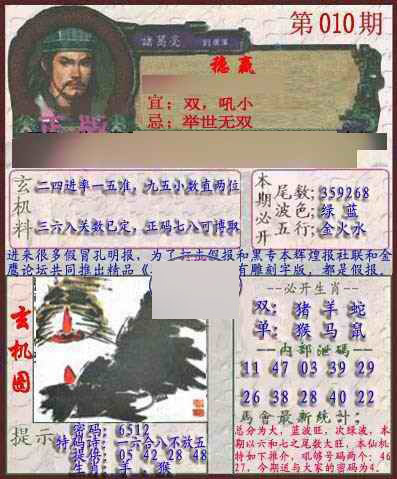 第010期
諸葛亮
稳赢
宜：双，吼小
忌：举世无双
正版
玄机料
二四进率一五准，九五小数直两位
三六八关数已定，正码七八可博取
本期必开
尾数：359268
波色：绿 蓝
五行：金火水
进来很多假冒孔明报，为了打击假报和黑专本辉煌报社联和金
鹰论坛共同推出精品《
有雕刻字版，都是假报.
玄机图
--必开生肖--
双：猪 羊 蛇
单：猴 马 鼠
--内部泄码--
11 47 03 39 29
26 38 28 40 22
馬會最新统计：
总分为大，蓝波旺，次绿波，本
期以六和七之尾数大旺，本仙机
特如下推介，吼够号码两个：46
27，今期送与大家的密码为4.
提示
密码：6512
特码诗：一六合八不放五
提供：05 42 28 48
生肖：羊、猴